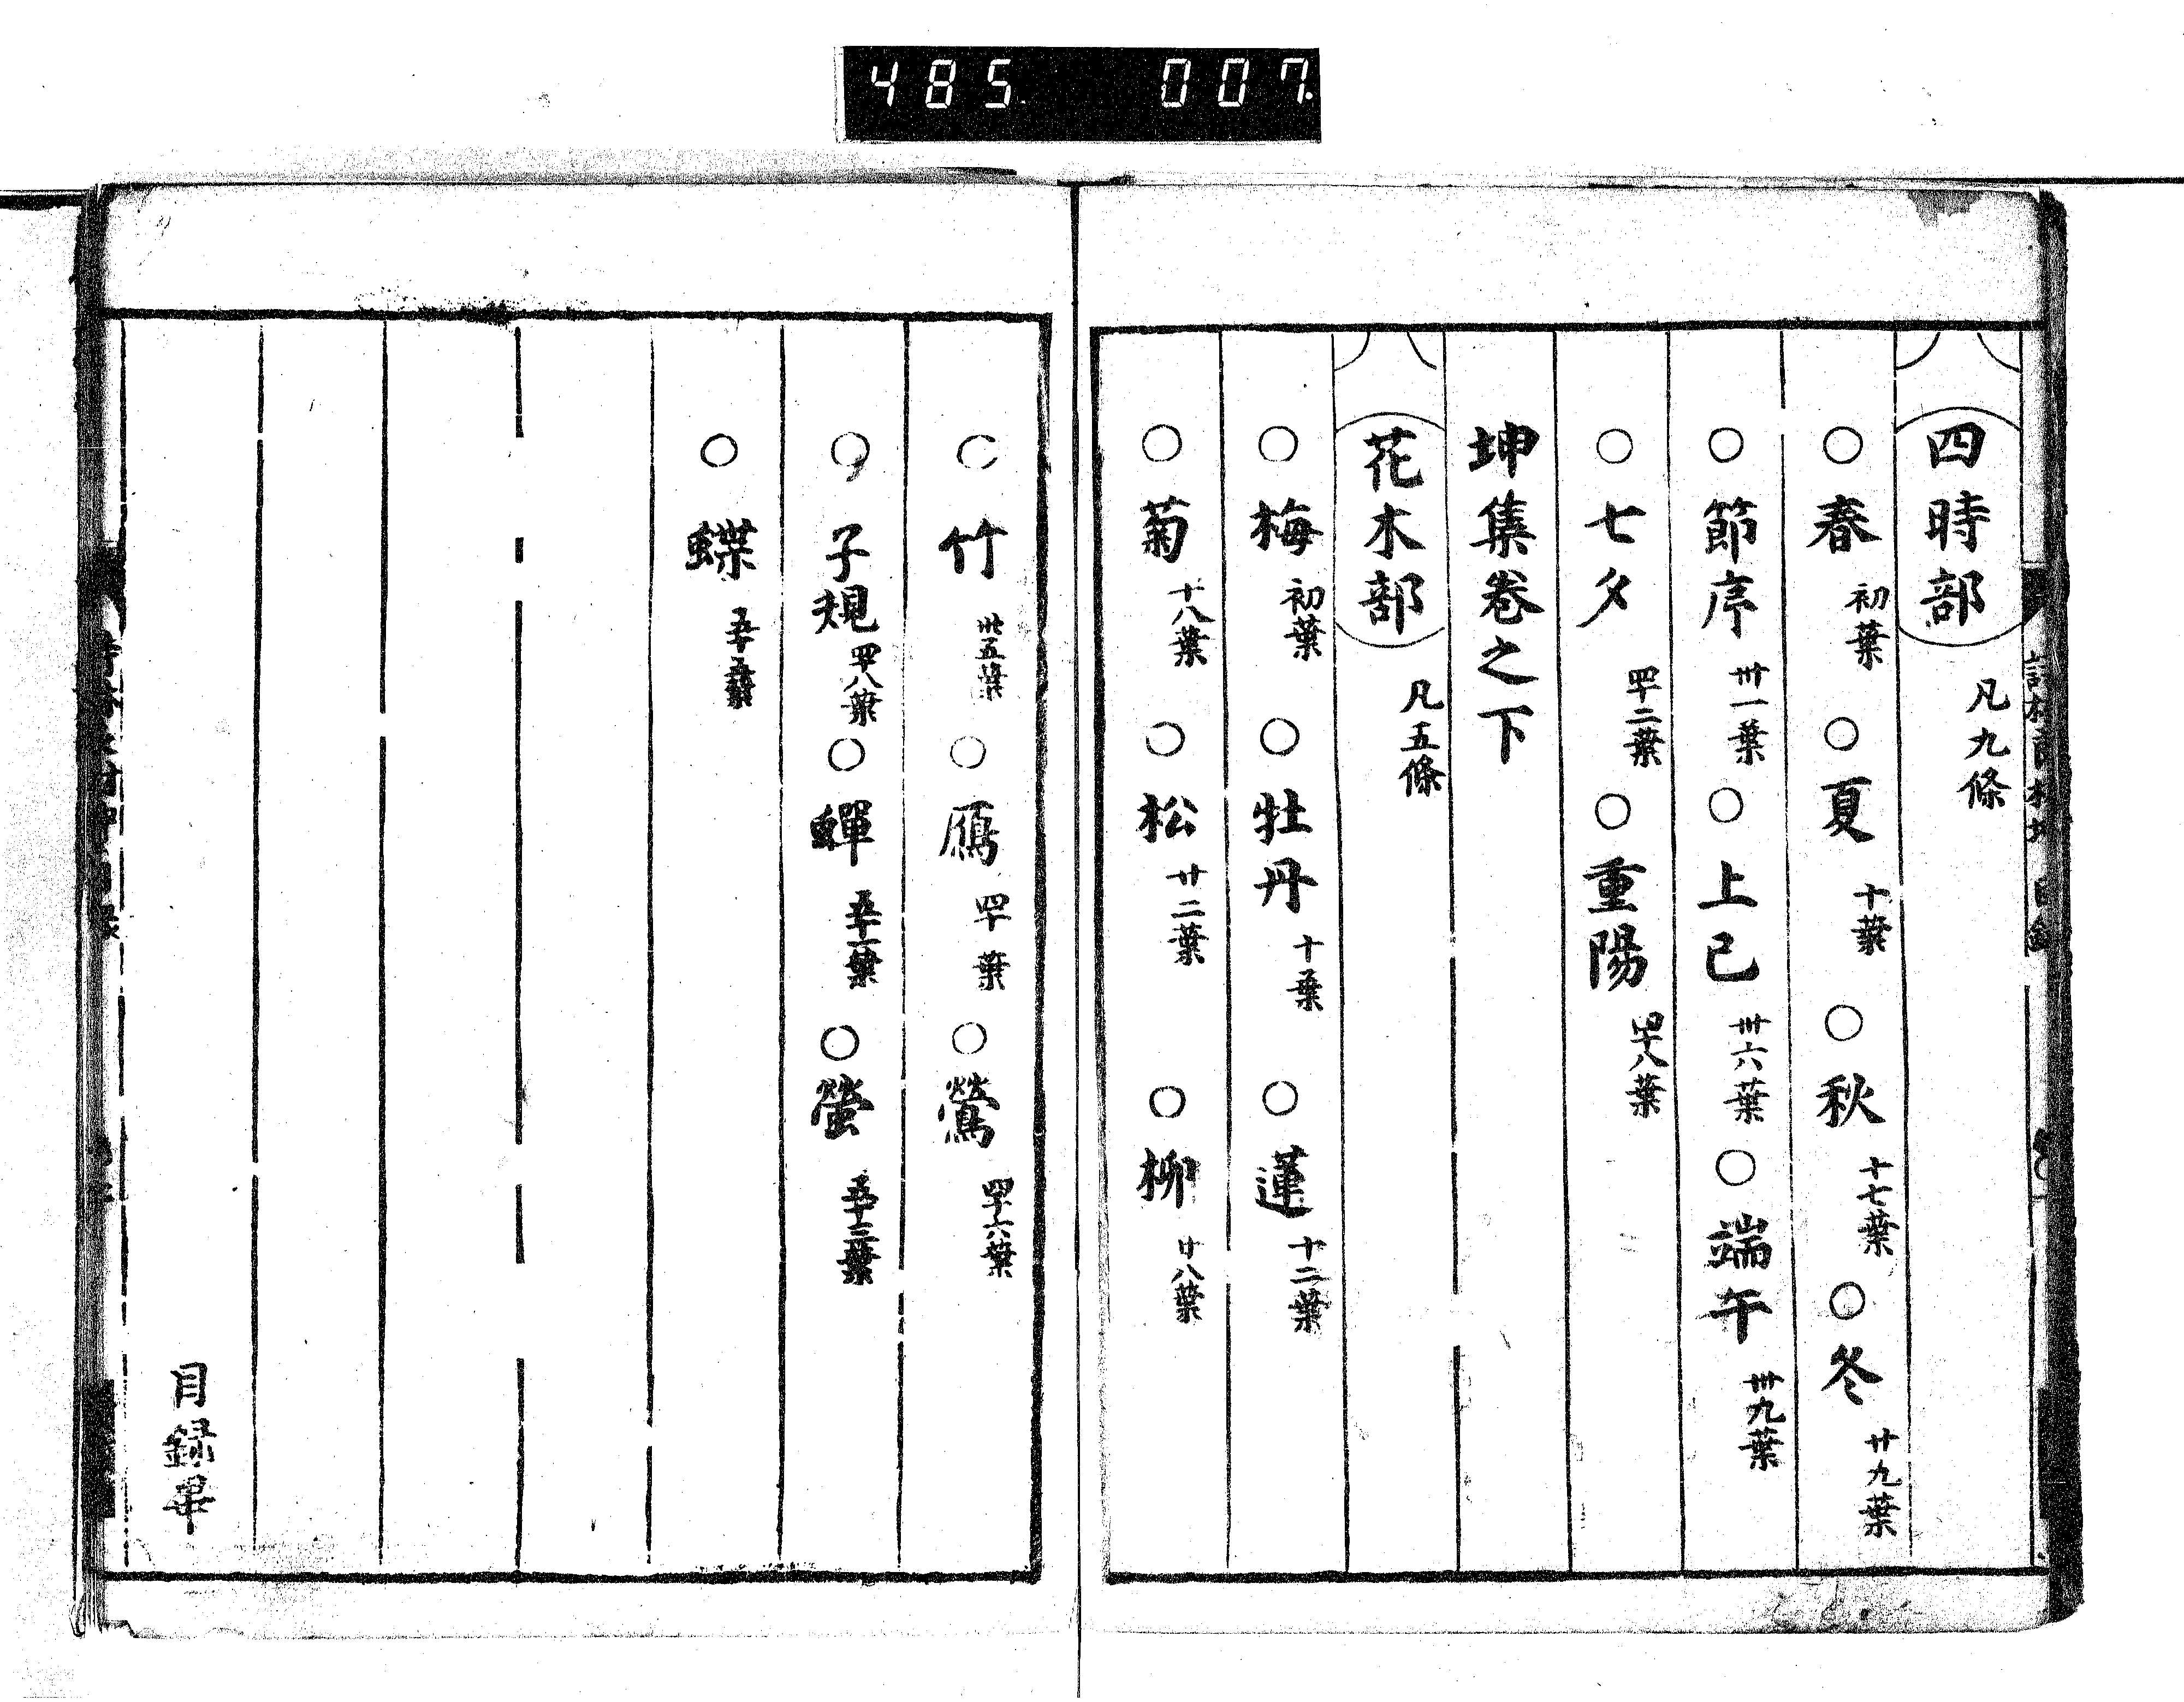 485. 007.
四時部 凡九條
○春 初葉 ○夏 十葉 ○秋 十七葉 ○冬 廿九葉
○節序 卅一葉 ○上巳 卅六葉 ○端午 卅九葉
○七夕 四十二葉 ○重陽 四十八葉
坤集卷之下
花木部 凡五條
○梅 初葉 ○牡丹 十葉 ○蓮 十二葉
○菊 十八葉 ○松 廿二葉 ○柳 廿八葉
○竹 卅五葉 ○鴈 四十葉 ○鶯 四十六葉
○子規 四十八葉 ○蟬 五十一葉 ○螢 五十三葉
○蝶 五十五葉
目録畢